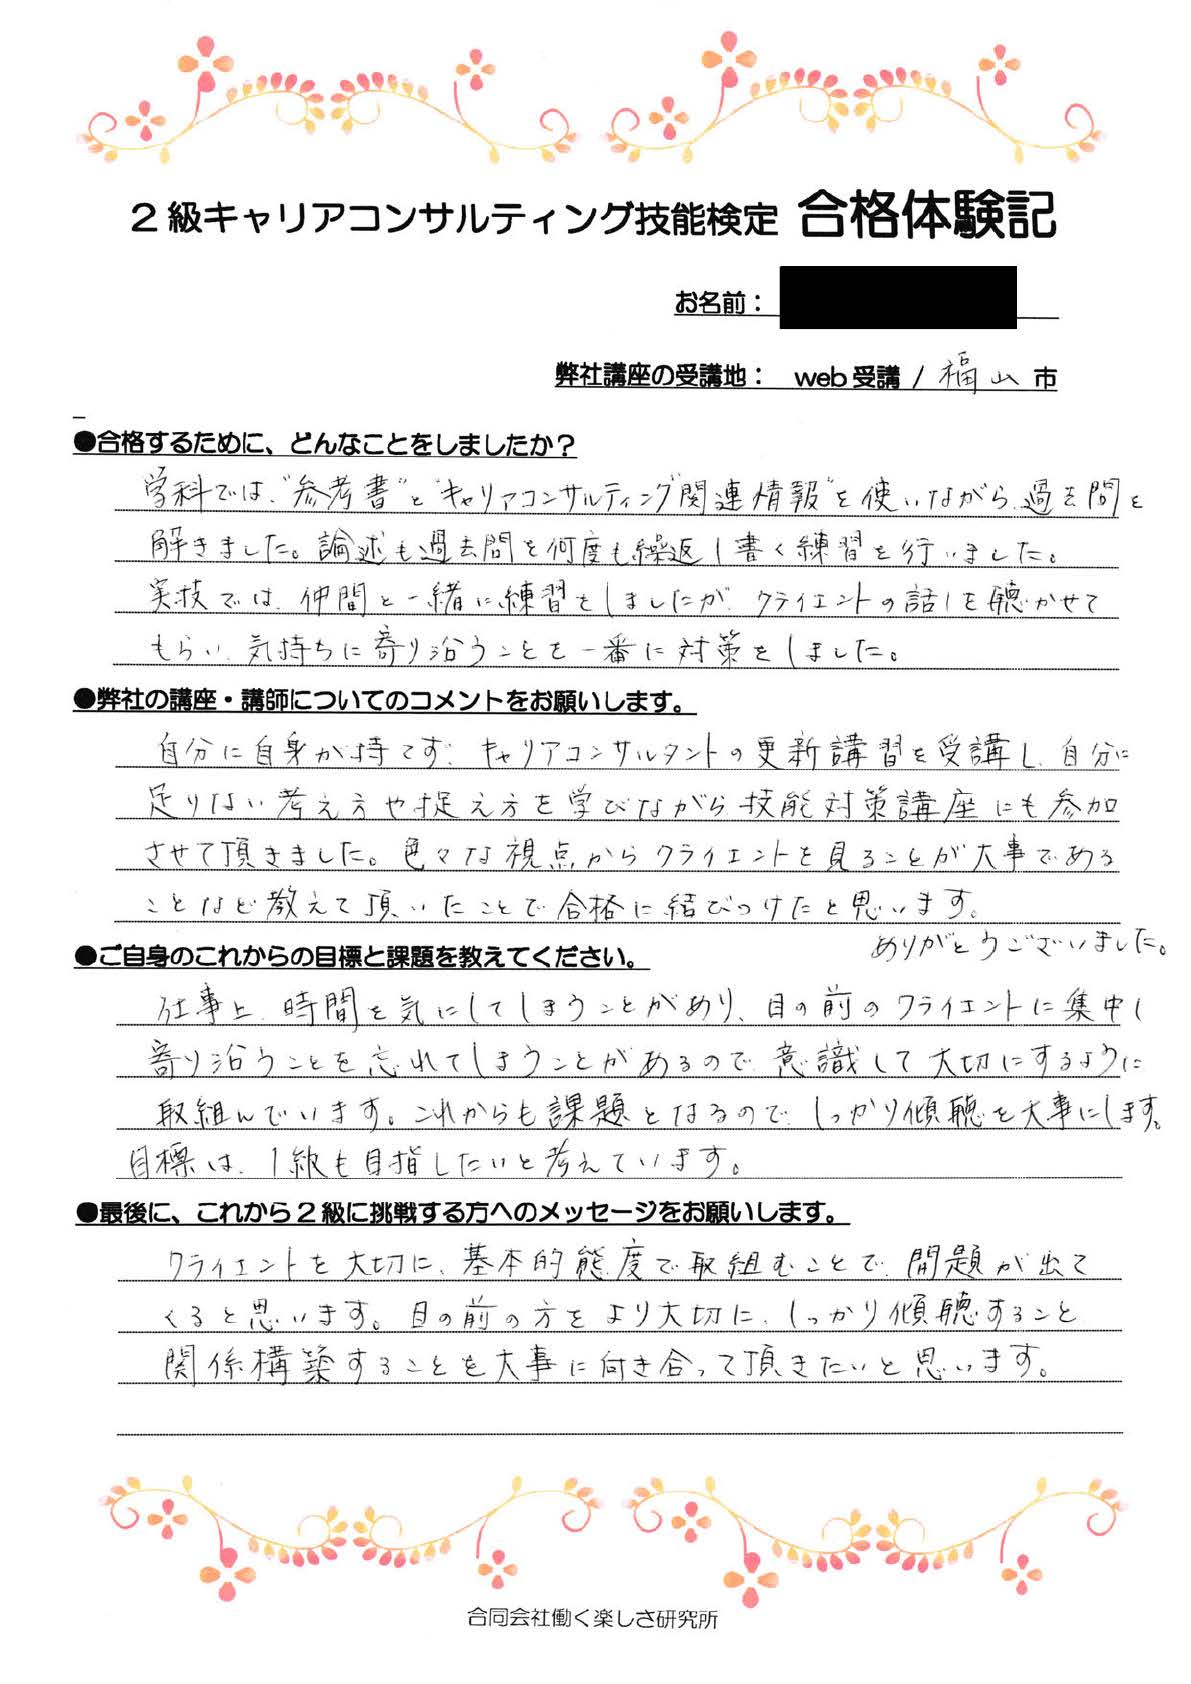 2級キャリアコンサルティング技能検定 合格体験記
お名前：
弊社講座の受講地： web受講 / 福山 市
●合格するために、どんなことをしましたか？
学科では、"参考書"と"キャリアコンサルティング関連情報"を使いながら、過去問を
解きました。論述も過去問を何度も繰返し書く練習を行いました。
実技では、仲間と一緒に練習をしましたが、クライエントの話しを聴かせて
もらい、気持ちに寄り沿うことを一番に対策をしました。
●弊社の講座・講師についてのコメントをお願いします。
自分に自身が持てず、キャリアコンサルタントの更新講習を受講し、自分に
足りない考え方や捉え方を学びながら技能対策講座にも参加
させて頂きました。色々な視点からクライエントを見ることが大事である
ことなど教えて頂いたことで合格に結びつけたと思います。
ありがとうございました。
●ご自身のこれからの目標と課題を教えてください。
仕事上、時間を気にしてしまうことがあり、目の前のクライエントに集中し
寄り沿うことを忘れてしまうことがあるので、意識して大切にするように
取組んでいます。これからも課題となるので、しっかり傾聴を大事にします。
目標は、1級も目指したいと考えています。
●最後に、これから2級に挑戦する方へのメッセージをお願いします。
クライエントを大切に、基本的態度で取組むことで、問題が出て
くると思います。目の前の方をより大切に、しっかり傾聴すること
関係構築することを大事に向き合って頂きたいと思います。
合同会社働く楽しさ研究所